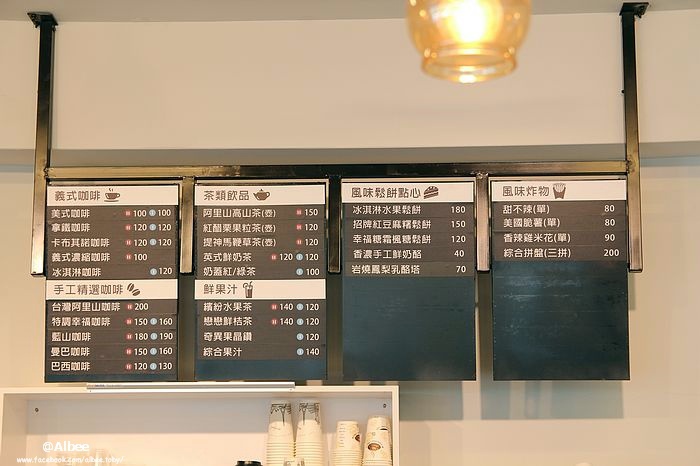 義式咖啡
美式咖啡 H 100 I 100
拿鐵咖啡 H 120 I 120
卡布其諾咖啡 H 120 I 120
義式濃縮咖啡 H 100
冰淇淋咖啡 I 120
手工精選咖啡
台灣阿里山咖啡 H 200
特調幸福咖啡 H 150 I 160
藍山咖啡 H 180 I 190
曼巴咖啡 H 150 I 160
巴西咖啡 H 120 I 130
茶類飲品
阿里山高山茶(壺) H 150
紅醋栗果粒茶(壺) H 120
提神馬鞭草茶(壺) H 120
英式鮮奶茶 H 120 I 120
奶蓋紅/綠茶 I 100
鮮果汁
繽紛水果茶 H 140 I 120
戀戀鮮桔茶 H 140 I 120
奇異果晶鑽 I 120
綜合果汁 I 140
風味鬆餅點心
冰淇淋水果鬆餅 180
招牌紅豆麻糬鬆餅 150
幸福糖霜楓糖鬆餅 120
香濃手工鮮奶酪 40
岩燒鳳梨乳酪塔 70
風味炸物
甜不辣(單) 80
美國脆薯(單) 80
香辣雞米花(單) 90
綜合拼盤(三拼) 200
@Aibee